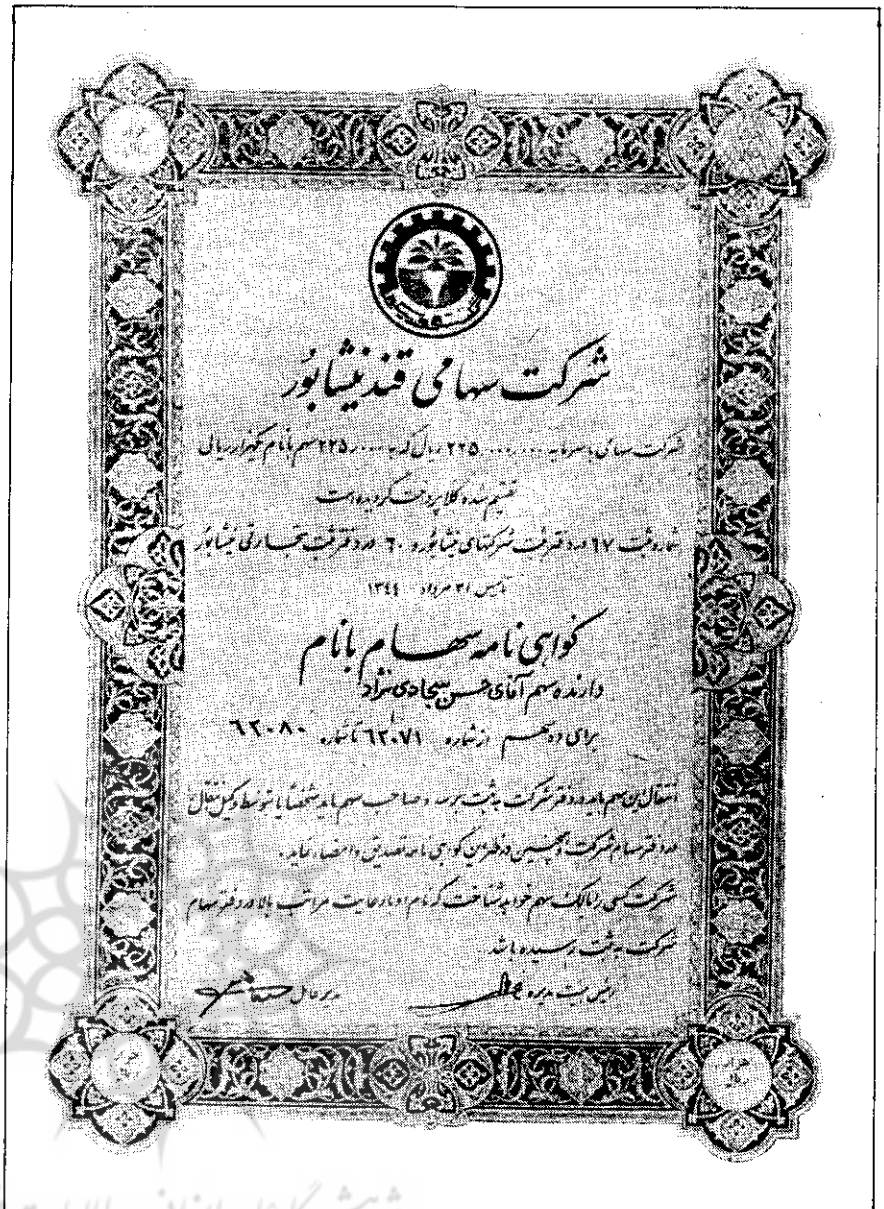 شرکت سهامی قند نیشابور
شرکت سهامی با سرمایه ۲۲۵٫۰۰۰٫۰۰۰ ریال که به ۲۲۵٫۰۰۰ سهم با نام یکهزار ریالی
تقسیم شده و کلا پرداخت گردیده است
شماره ثبت ۶۷ در دفتر ثبت شرکتهای نیشابور و ۶۰ در دفتر ثبت تجارتی نیشابور
تاسیس ۳۱ مرداد ۱۳۴۴
گواهی نامه سهام با نام
دارنده سهم آقای حسن سجادی نژاد
برای ده سهم از شماره ۶۲۰۷۱ تا شماره ۶۲۰۸۰
انتقال این سهم باید در دفتر شرکت به ثبت برسد و صاحب سهم باید شخصاً یا توسط وکیل انتقال
در دفتر سهام شرکت و همچنین در ظهر این گواهی نامه تصدیق و امضاء نماید.
شرکت کسی را مالک سهم خواهد شناخت که نام او با رعایت مراتب بالا در دفتر سهام
شرکت به ثبت رسیده باشد.
رئیس هیئت مدیره مدیر عامل